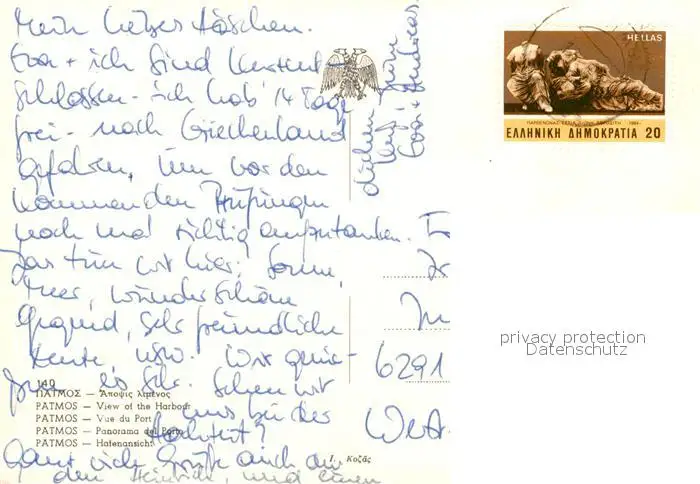 Mein liebes Häschen.
Eva + ich sind kurzent-
schlossen - ich hab' 14 Tage
frei - nach Griechenland
gefahren, um vor den
kommenden Prüfungen
noch mal richtig aufzutanken.
Das tun wir hier: Sonne,
Meer, wunderschöne
Gegend, sehr freundliche
Leute, usw. Wir genie-
ßen es sehr. Sehen wir
uns bei der
Hochzeit?
Ganz viele Grüße auch an
den Heinrich, und einen
Eva + Andreas
HELLAS
ΠΑΡΘΕΝΩΝΑΣ ΕΣΤΙΑ ΔΙΩΝΗ ΑΦΡΟΔΙΤΗ 1984
ΕΛΛΗΝΙΚΗ ΔΗΜΟΚΡΑΤΙΑ 20
6291
privacy protection
Datenschutz
140
ΠΑΤΜΟΣ — Άποψις λιμένος
PATMOS — View of the Harbour
PATMOS — Vue du Port
PATMOS — Panorama del Porto
PATMOS — Hafenansicht
Γ. Κοζάς